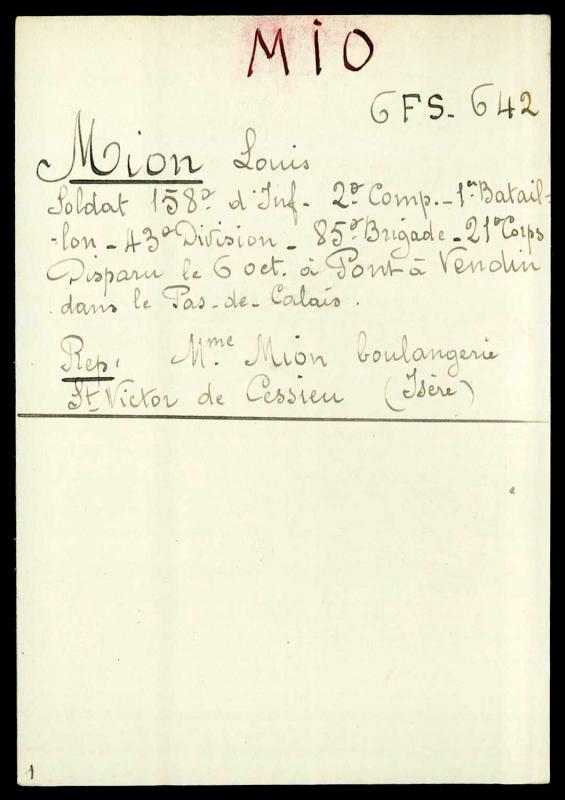 MIO
6 FS. 642
Mion Louis
Soldat 158e d'Inf. 2e Comp. - 1er Batail-
-lon - 43e Division - 85e Brigade - 21e Corps
Disparu le 6 oct. à Pont à Vendin
dans le Pas-de-Calais.
Rep. Mme Mion boulangerie
St Victor de Cessieu (Isère)
1